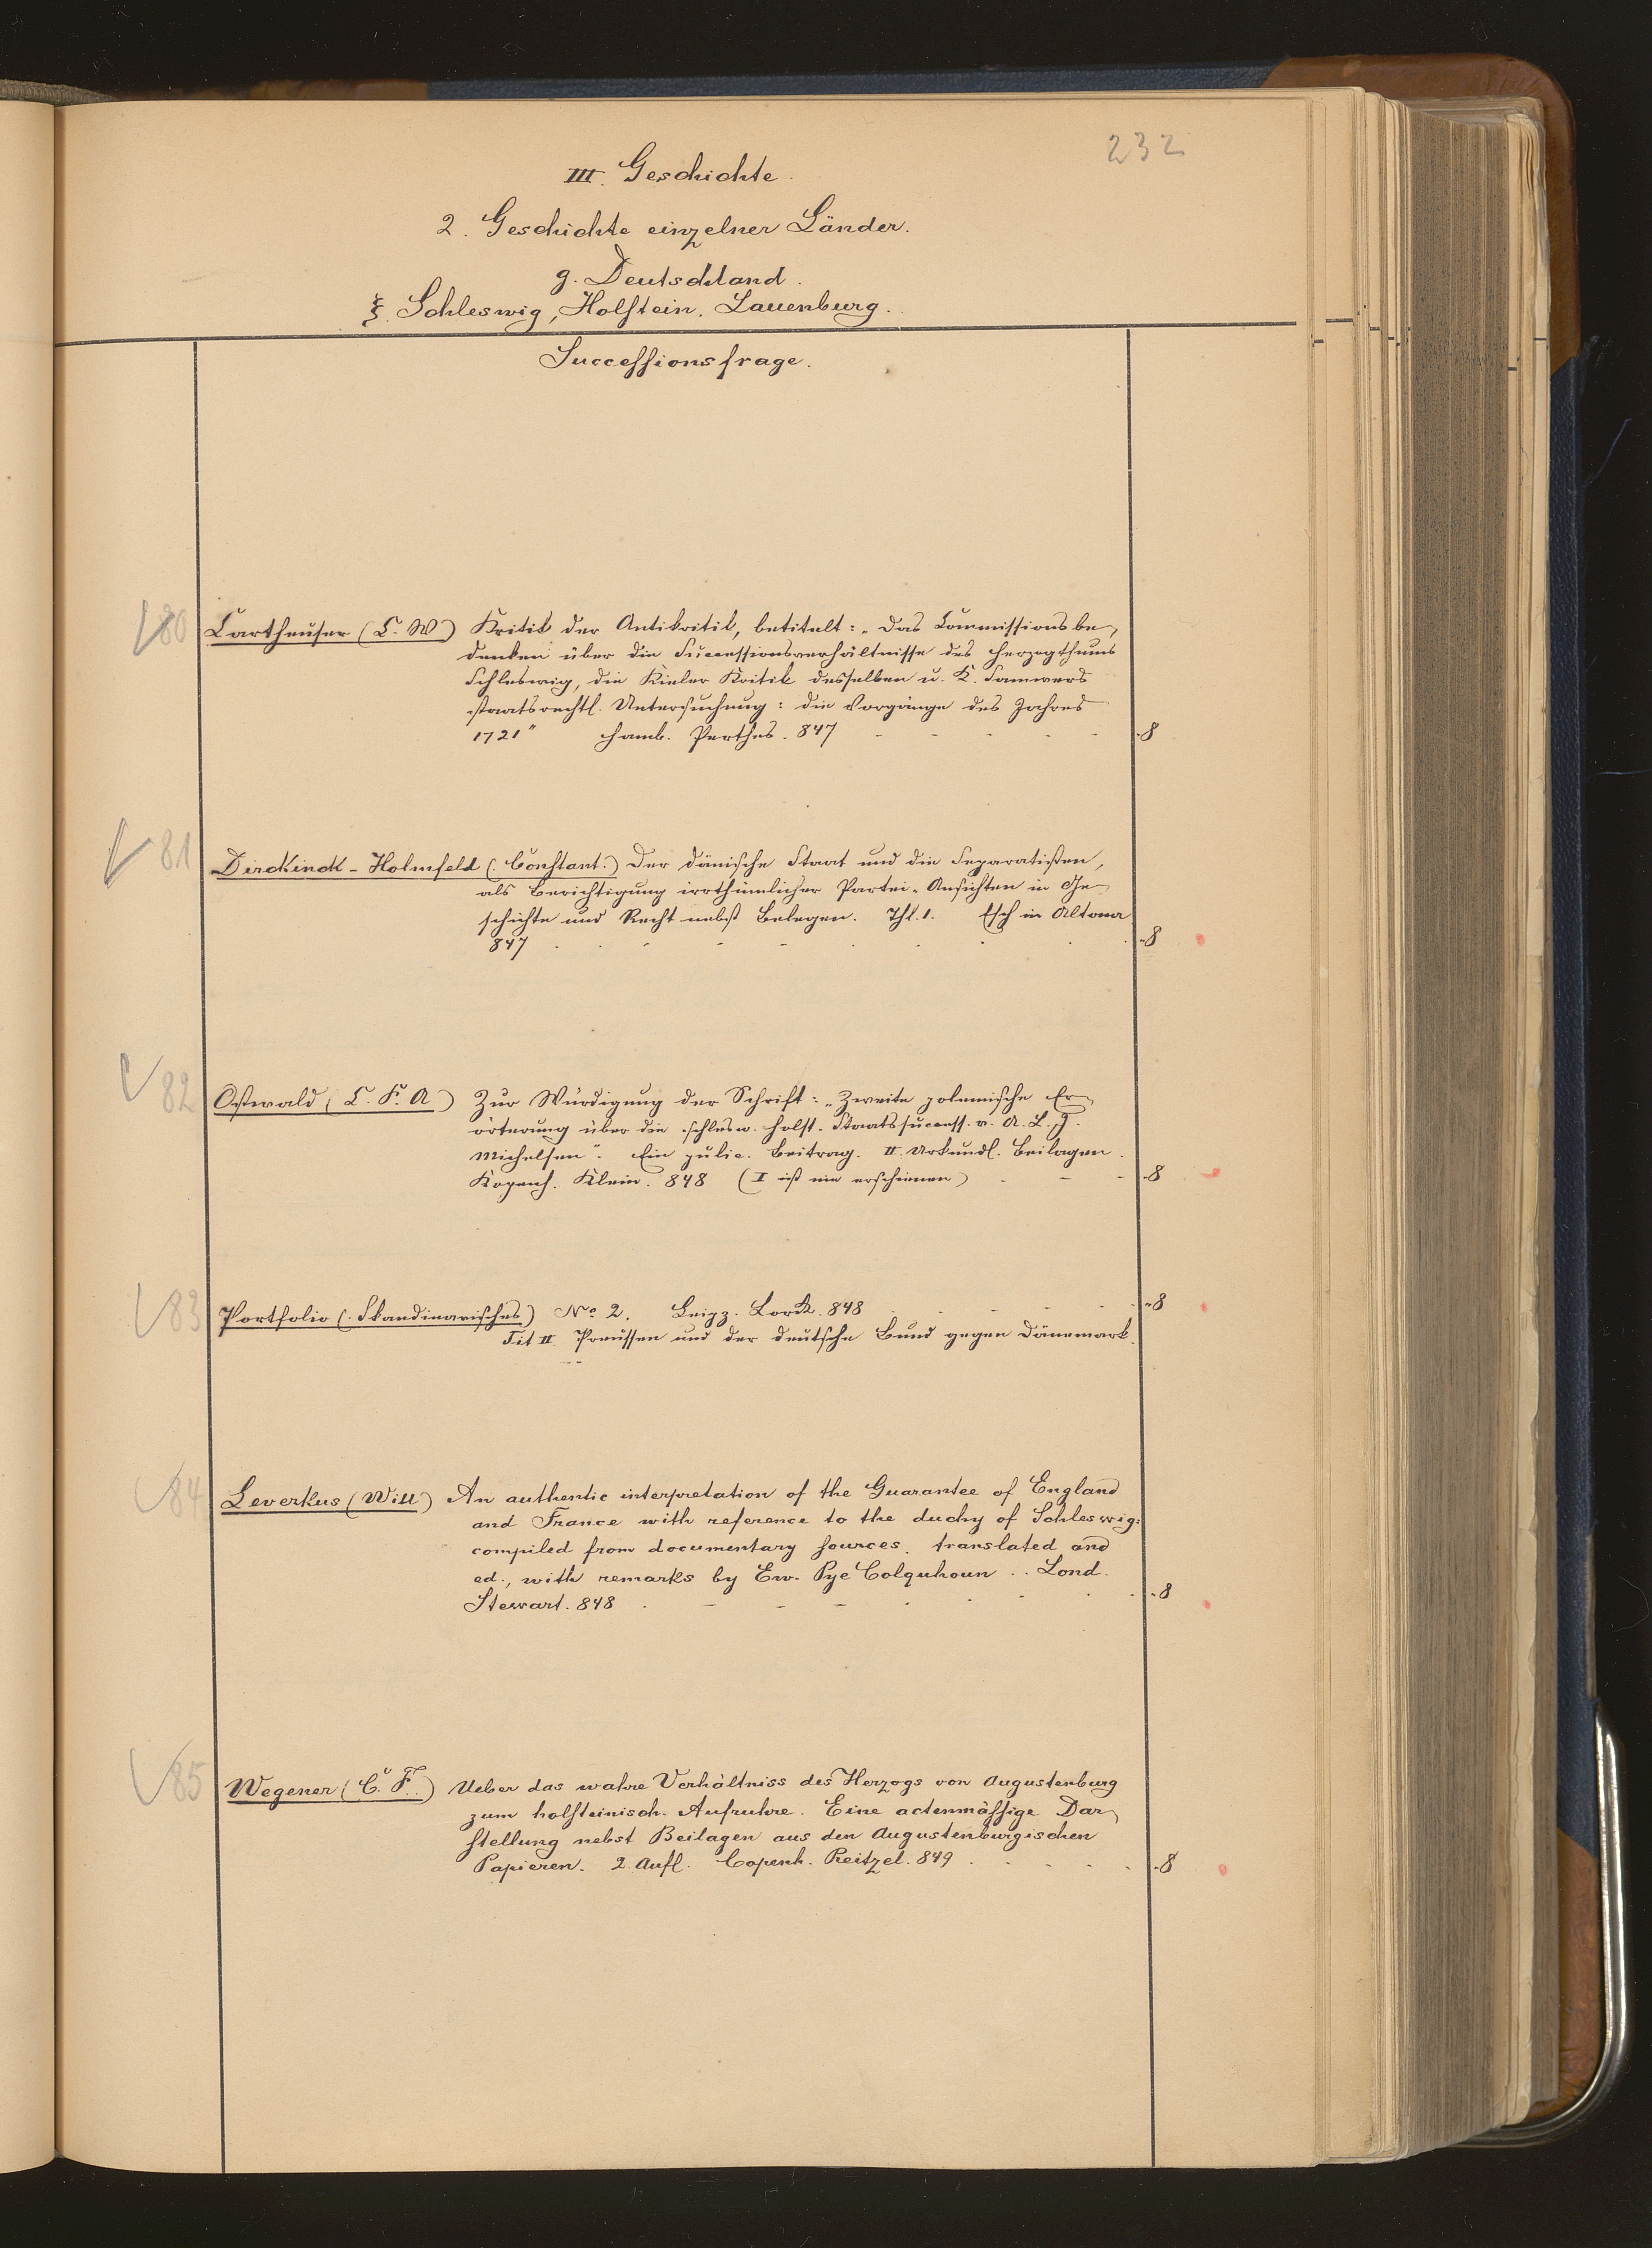 232
III. Geschichte.
2. Geschichte einzelner Länder.
g. Deutschland.
ξ. Schleswig, Holstein, Lauenburg.
Successionsfrage.
80 Cartheuser (C. W) Kritik der Antikritik, betitelt: „Das Commissionsbe-
denken über die Successionsverhältnisse des Herzogthums
Schleswig, die Kieler Kritik desselben u. K. Samwers
staatsrechtl. Untersuchung: die Vorgänge des Jahres
1721" Hamb. Perthes. 847 - - - - - 8
81 Dirckinck-Holmfeld (Constant.) Der dänische Staat und die Separatisten,
als Berichtigung irrthümlicher Partei-Ansichten in Ge-
schichte und Recht nebst Belegen. Thl. 1. Esch in Altona
847 . . - - - . . . . 8
82 Ostwald (C. F. A) Zur Würdigung der Schrift: „Zweite polemische Er-
örterung über die schlesw. holst. Staatssuccess. v. A. L. J.
Michelsen". Ein public. Beitrag. II. Urkundl. Beilagen.
Kopenh. Klein. 848 (I ist nie erschienen) . - - 8
83 Portfolio (Skandinavisches) No 2. Leipz. Lorck. 848 . . - - . . 8
Tit II. Preussen und der deutsche Bund gegen Dänemark.
84 Leverkus (Will) An authentic interpretation of the Guarantee of England
and France with reference to the duchy of Schleswig:
compiled from documentary sources. translated and
ed., with remarks by Ew. Pye Colquhoun .. Lond.
Stewart. 848 . - - - . . . . 8
85 Wegener (C. F.) Ueber das wahre Verhältniss des Herzogs von Augustenburg
zum holsteinisch. Aufruhre. Eine actenmässige Dar-
stellung nebst Beilagen aus den Augustenburgischen
Papieren. 2. Aufl. Copenh. Reitzel. 849 . . . . . 8